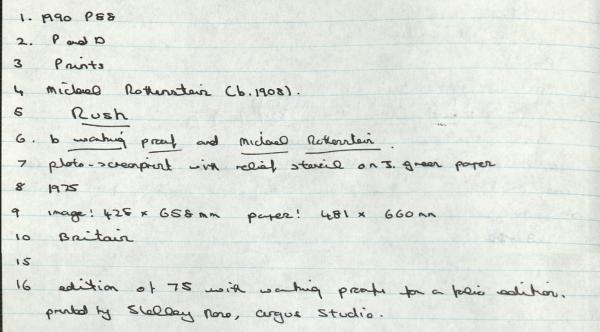 1. 1990 P88
2. P and D
3 Prints
4 Michael Rothenstein (b.1908).
5 Rush
6. b working proof and Michael Rothenstein.
7 photo-screenprint with relief stencil on J. green paper
8 1975
9 image: 425 x 658mm paper: 481 x 660mm
10 Britain
15
16 edition of 75 with working proofs for a edition.
printed by Shelley Rose, Argus Studio.